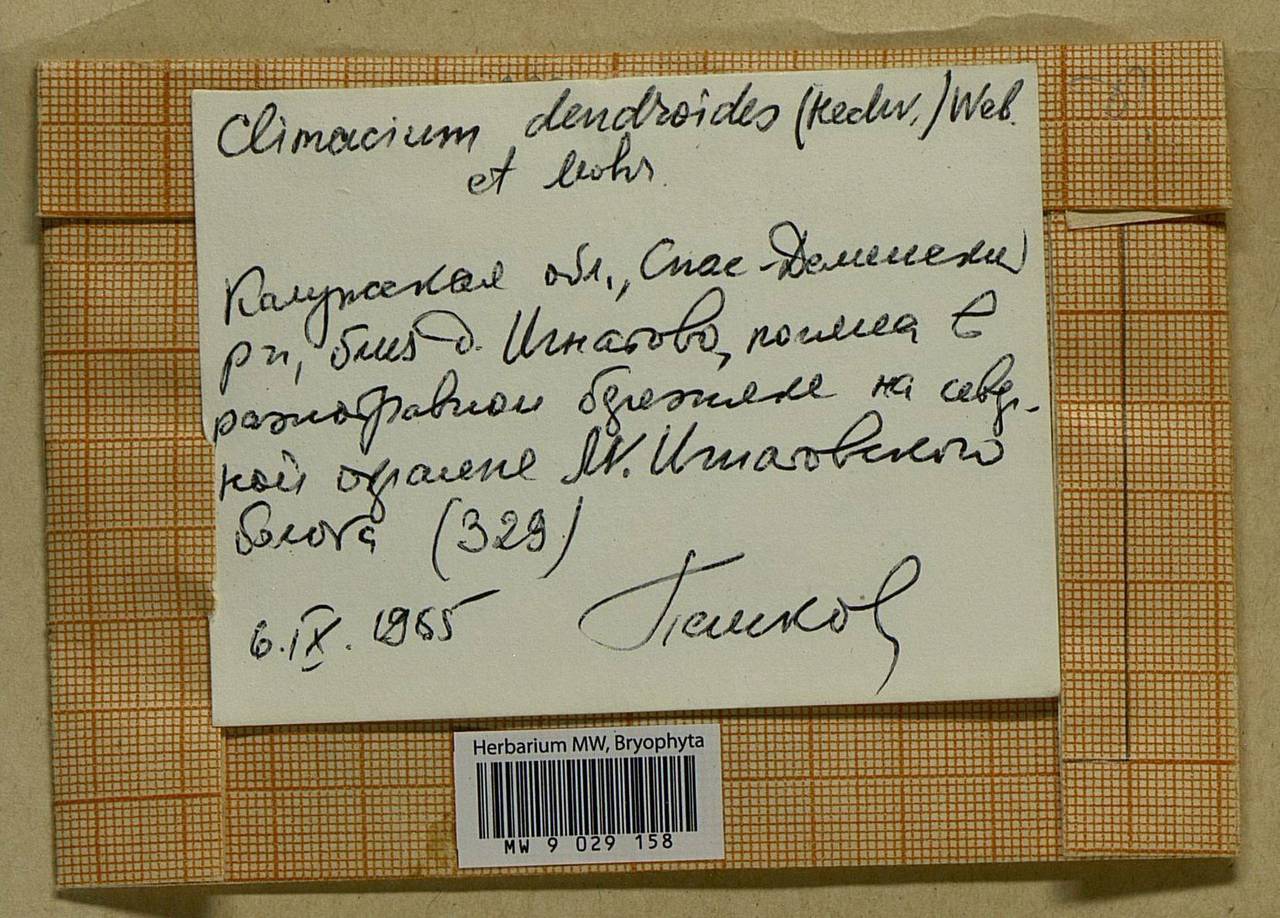 Climacium dendroides (Hedw.) Web.
et Mohr.
Калужская обл., Спас-Деменский
р-н, близ д. Игнатово, пойма в
разнотравном березняке на север-
ной окраине М. Игнатовского
болота (329)
6.IX.1965
Herbarium MW, Bryophyta
MW 9 029 158